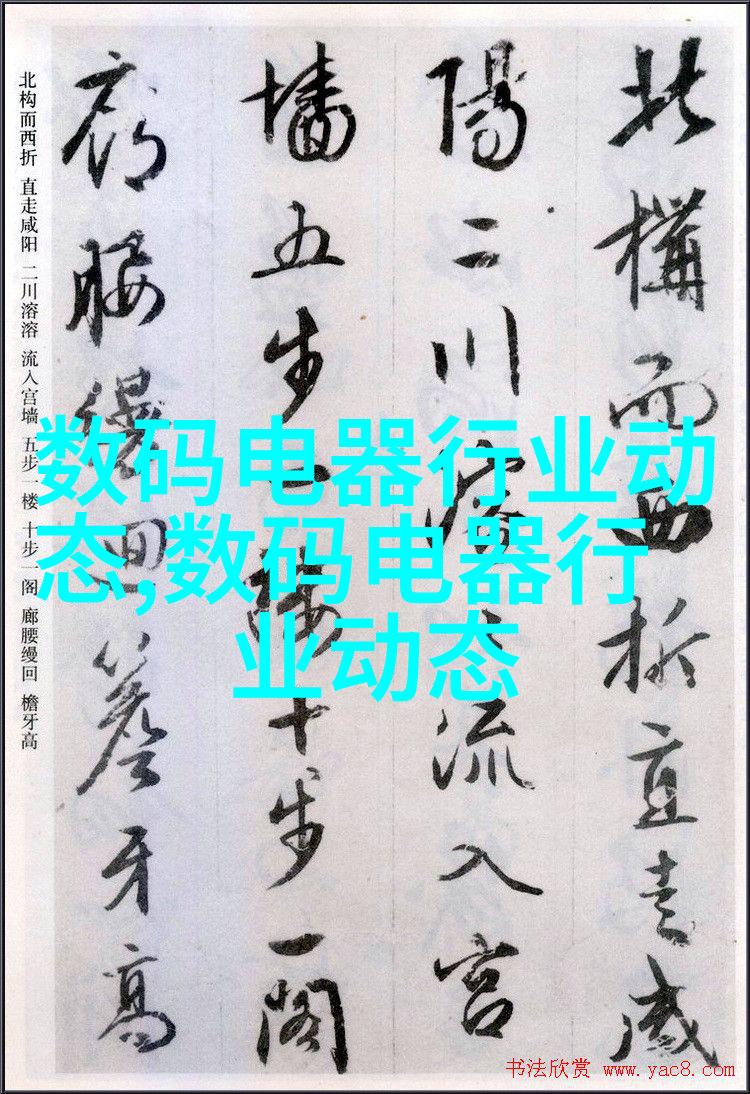 北構而西折直走咸
陽二川溶〻流入宫
墻五步一楼十步一阁
廊腰縵回簷牙高
北构而西折 直走咸阳 二川溶溶 流入宫墙 五步一楼 十步一阁 廊腰缦回 檐牙高
数码电器行业动
态,数码电器行
业动态
书法欣赏 www.yac8.com